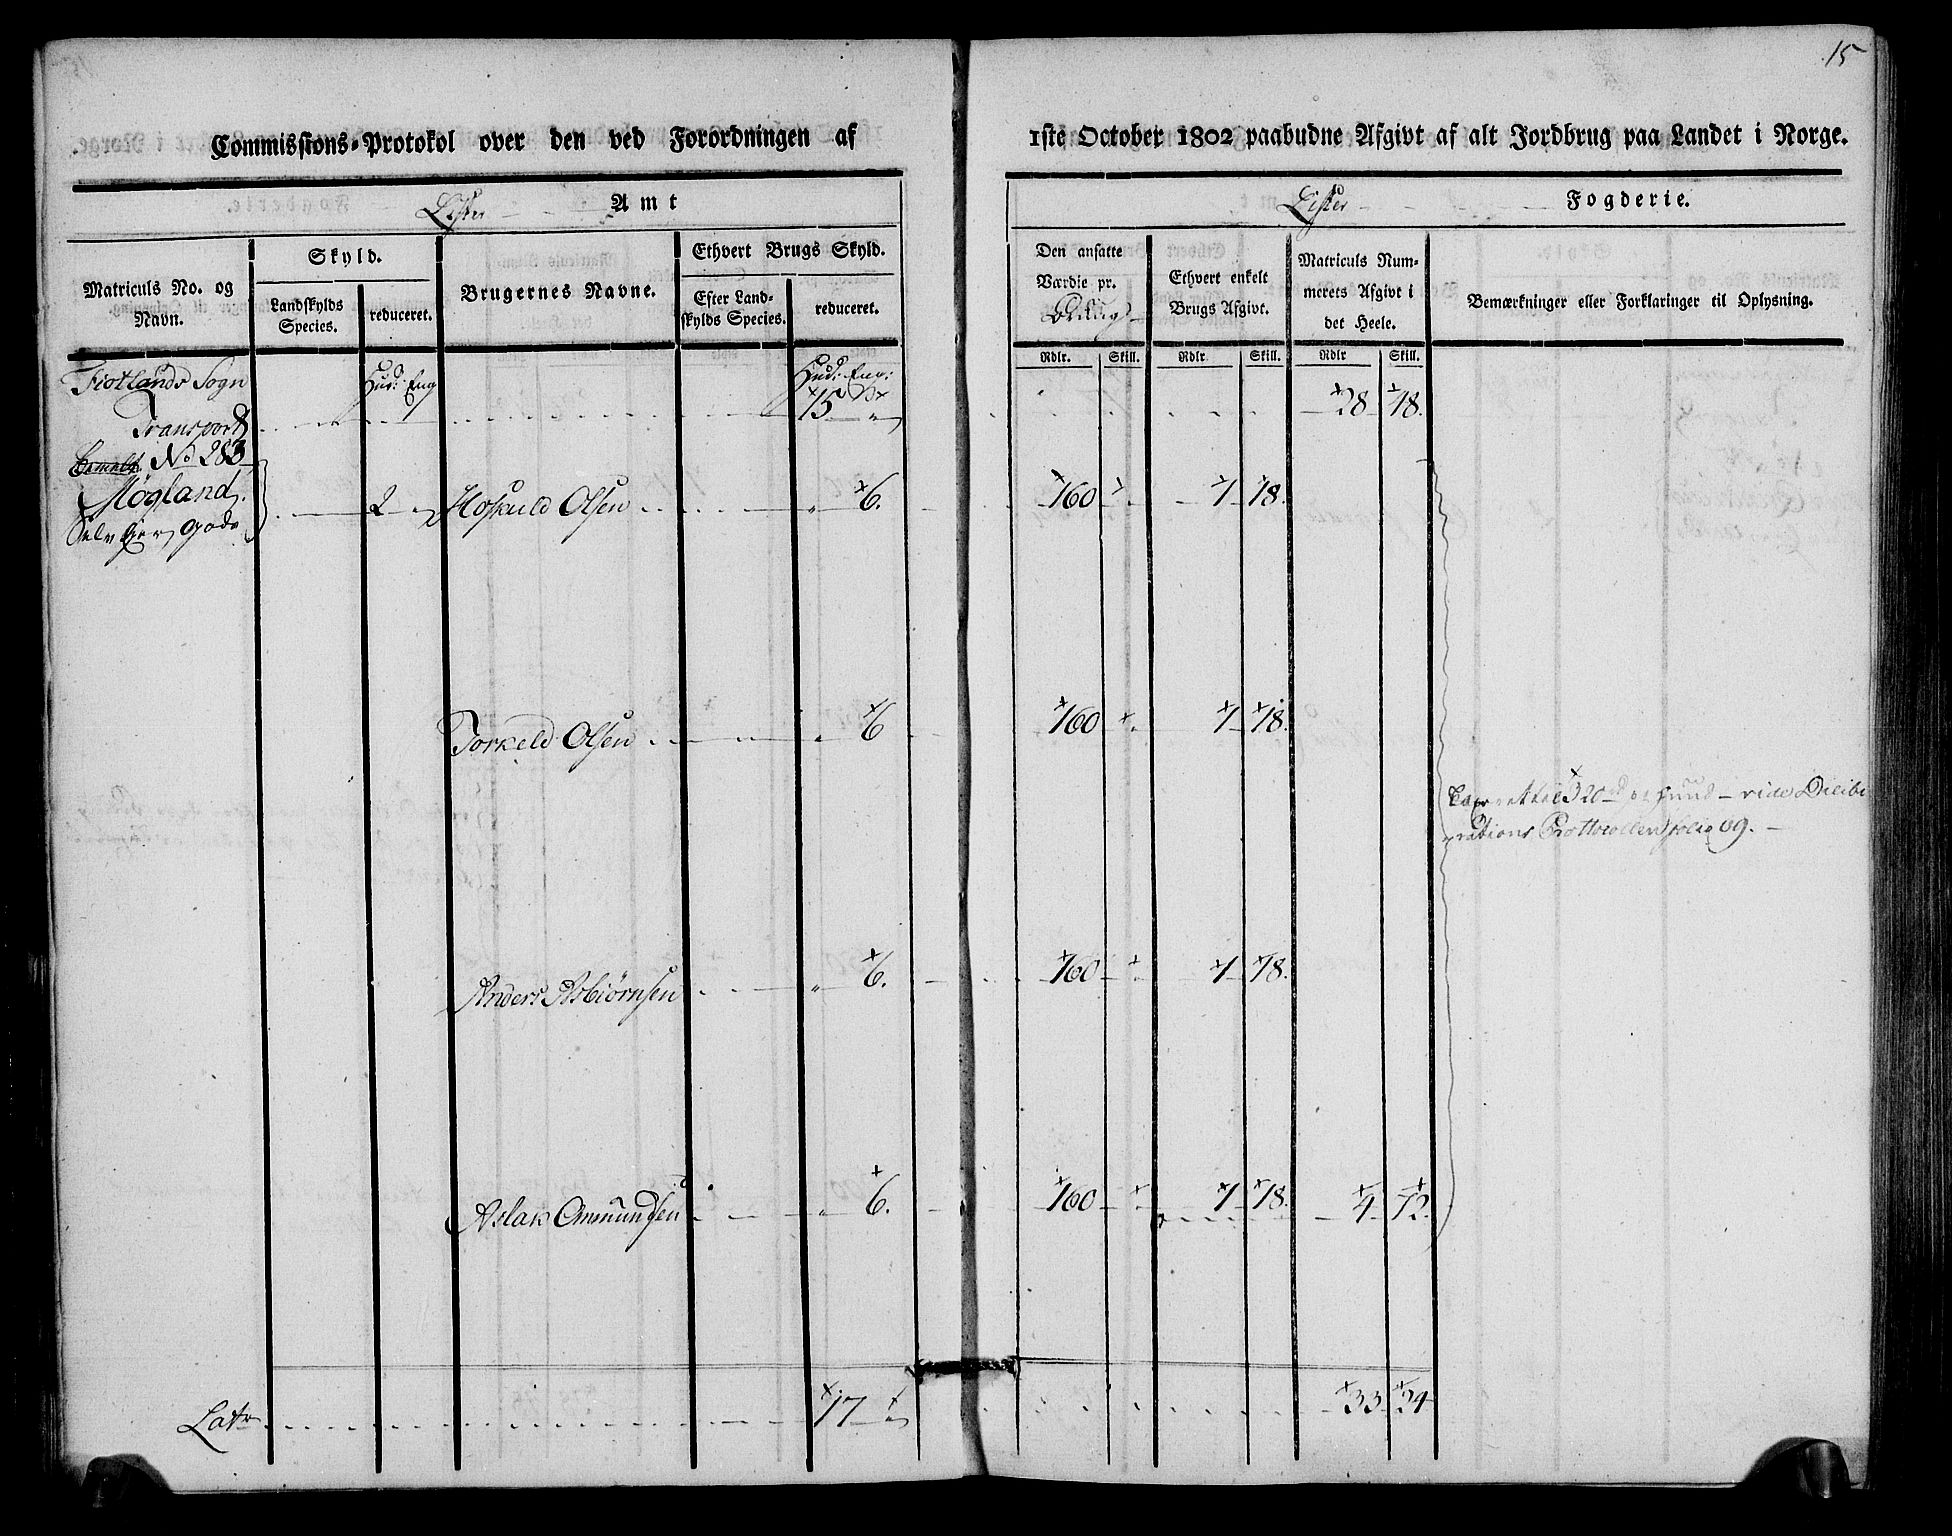 15
Commissions-Protokol over den ved Forordningen af
1ste October 1802 paabudne Afgivt af alt Jordbrug paa Landet i Norge.
Lister Amt
Lister Fogderie.
Matriculs No. og Navn.
Skyld.
Landskylds Species.
reduceret.
Brugernes Navne.
Ethvert Brugs Skyld.
Efter Landskylds Species.
reduceret.
Den ansatte Værdie pr.
Ethvert enkelt Brugs Afgivt.
Matriculs Nummerets Afgivt i det Heele.
Bemærkninger eller Forklaringer til Oplysning.
Rdlr. Skill. Rdlr Skill. Rdlr Skill.
Fiotlands Sogn Hud: Eng Hud: Eng:
Transport 15 " 28 48.
No 283
Møgland 2 " Hoskuld Olsen " 6. 160 1 18.
Selv Eier Gods
Torkeld Olsen " 6 160 1 18.
320
rations Prottocollen folio 89.
Anders Asbiørnsen " 6. 160 1 18.
Aslak Ommundsen " 6. 160 1 18. 4 72.
Latr 17 " 33 24